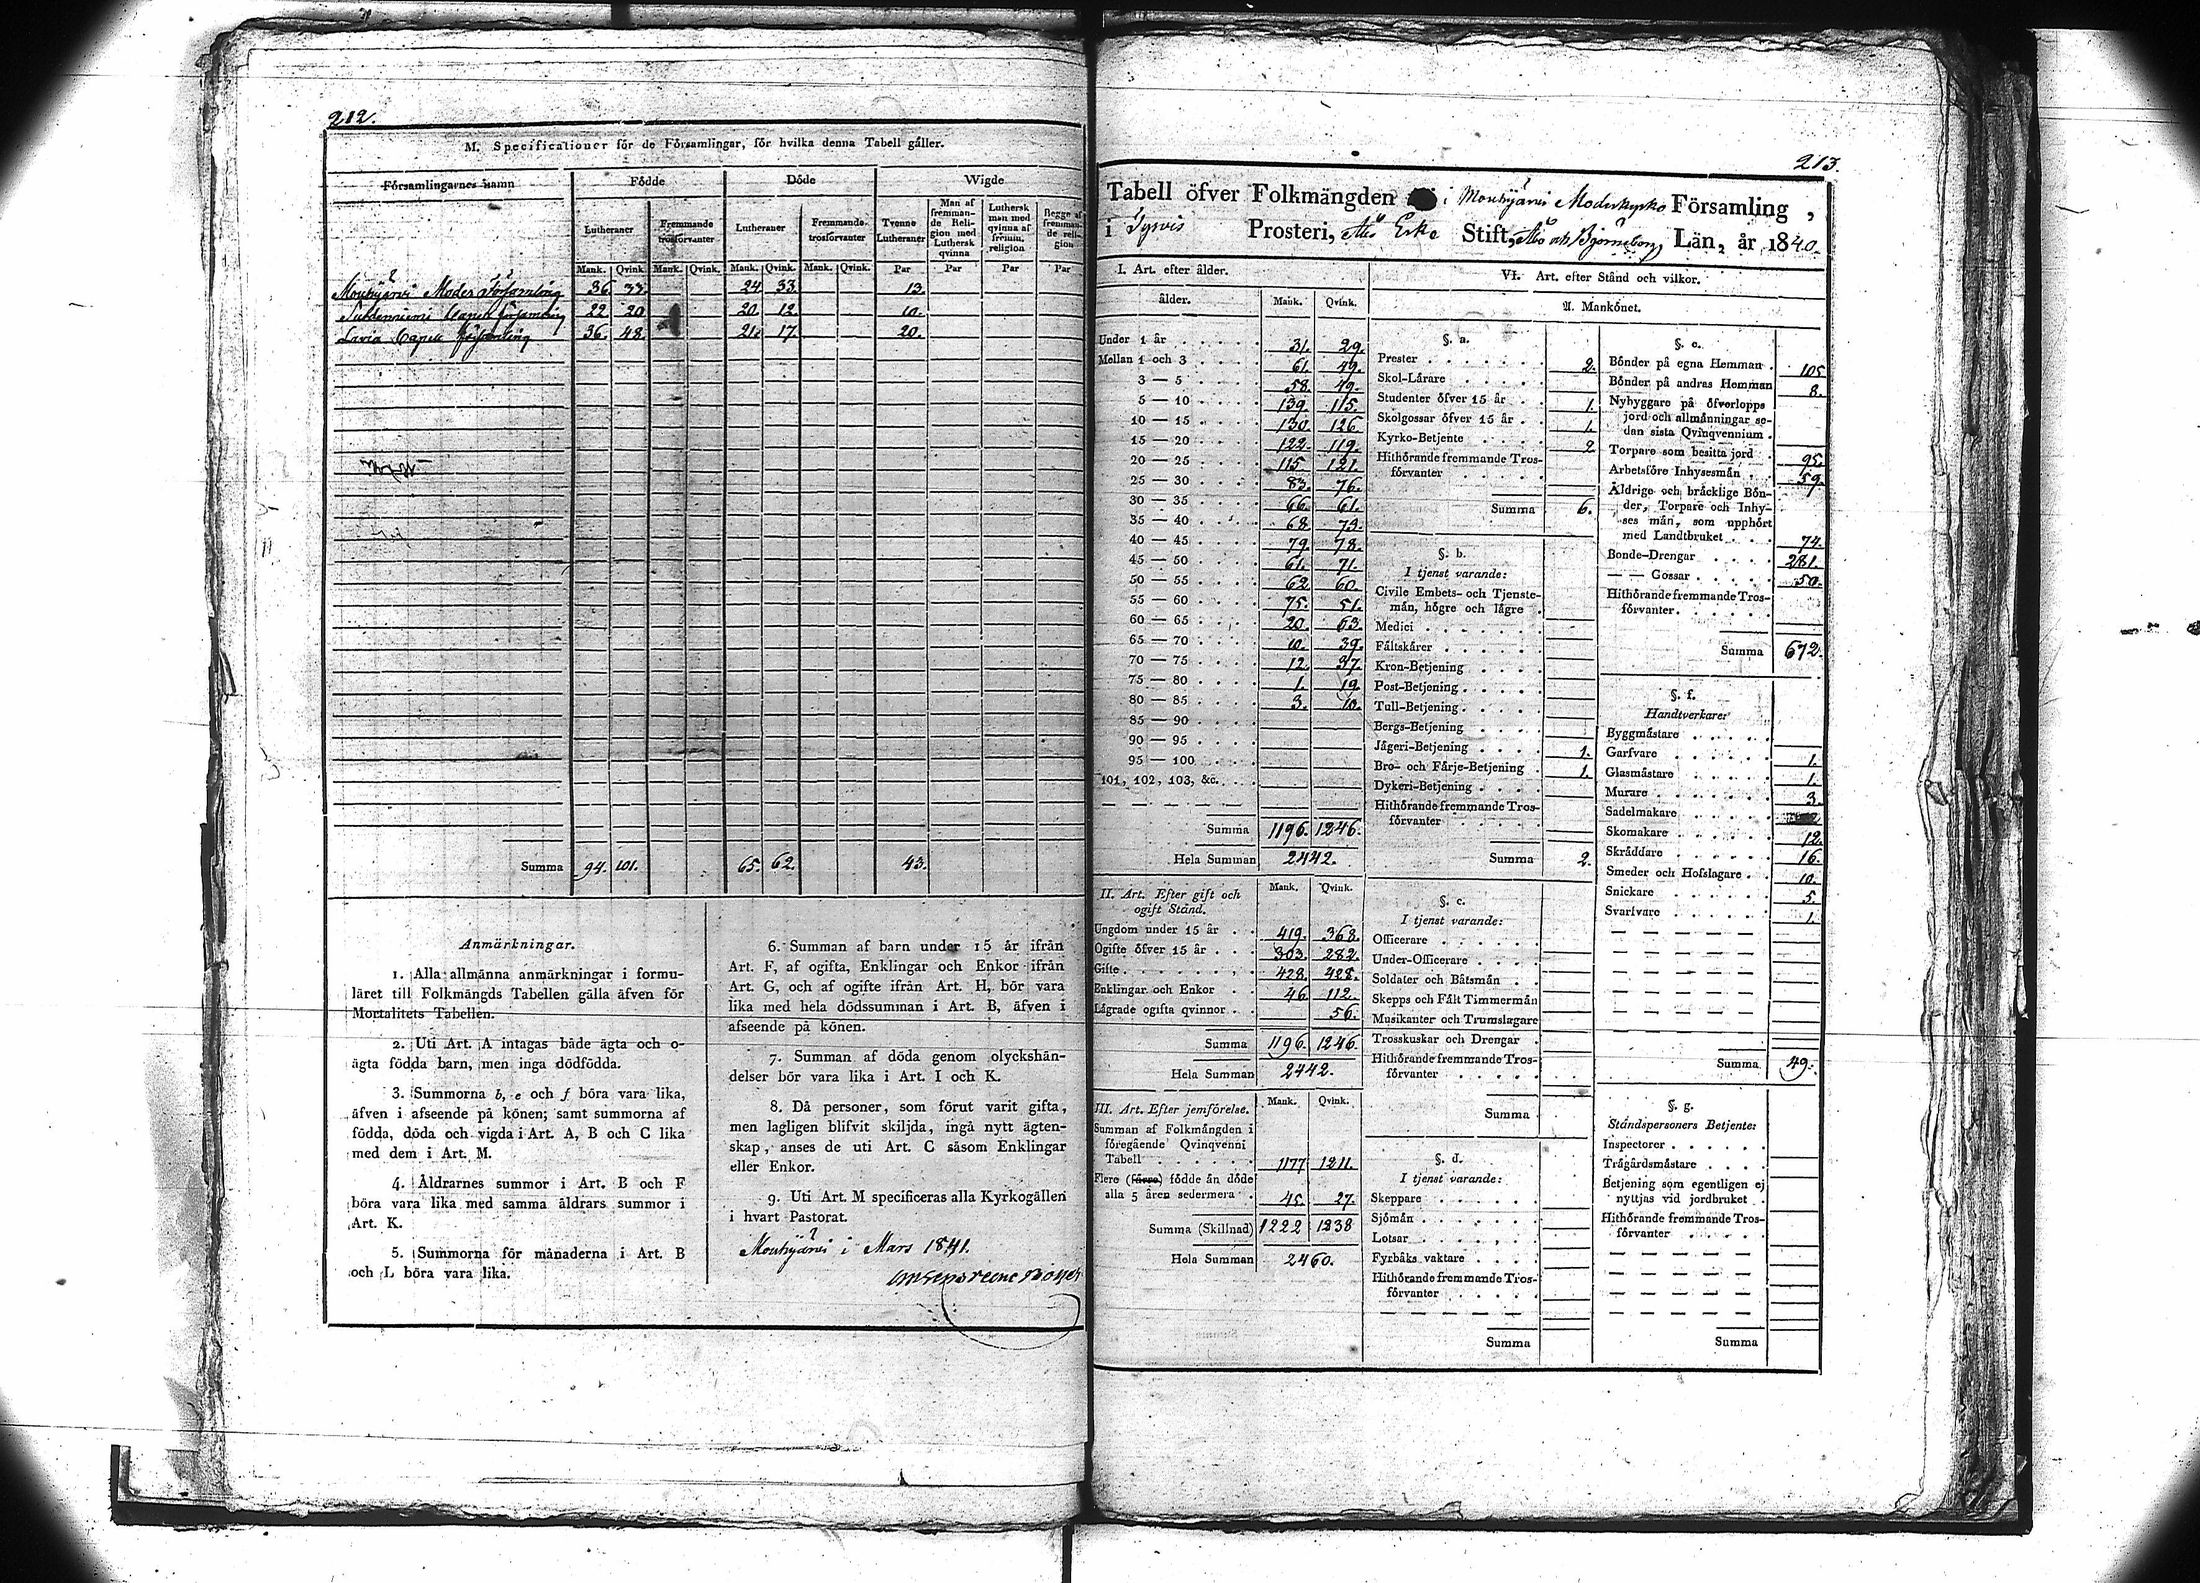 212.
M. Specificationer för de Församlingar, för hvilka denna Tabell gäller.
Församlingarnes namn Födde Döde Wigde
Lutheraner Fremmande trosförvanter Lutheraner Fremmande trosförvanter Tvenne Lutheraner Man af fremmande Religion med Luthersk qvinna Luthersk man med qvinna af fremm. religion Begge af fremmande religion
Mank. Qvink. Mank. Qvink. Mank. Qvink. Mank. Qvink. Par Par Par Par
Mouhijärvi Moder Församling 36. 33. 24. 33. 13.
Suodenniemi Capell församling 22. 20. 20. 12. 10.
Lavia Capell församling 36. 48. 21. 17. 20.
Summa 94. 101. 65. 62. 43.
Anmärkningar.
1. Alla allmänna anmärkningar i formu-
läret till Folkmängds Tabellen gälla äfven för
Mortalitets Tabellen.
2. Uti Art. A intagas både ägta och o-
ägta födda barn, men inga dödfödda.
3. Summorna b, e och f böra vara lika,
äfven i afseende på könen; samt summorna af
födda, döda och vigda i Art. A, B och C lika
med dem i Art. M.
4. Åldrarnes summor i Art. B och F
böra vara lika med samma åldrars summor i
Art. K.
5. Summorna för månaderna i Art. B
och L böra vara lika.
6. Summan af barn under 15 år ifrån
Art. F, af ogifta, Enklingar och Enkor ifrån
Art. G, och af ogifte ifrån Art. H, bör vara
lika med hela dödssumman i Art. B, äfven i
afseende på könen.
7. Summan af döda genom olyckshän-
delser bör vara lika i Art. I och K.
8. Då personer, som förut varit gifta,
men lagligen blifvit skiljda, ingå nytt ägten-
skap, anses de uti Art. C såsom Enklingar
eller Enkor.
9. Uti Art. M specificeras alla Kyrkogällen
i hvart Pastorat.
Mouhijärvi i Mars 1841.
213.
Tabell öfver Folkmängden i Mouhijärvi Moderkyrko Församling,
i Tyrvis Prosteri, Åbo Erke Stift, Åbo och Björneborgs Län, år 1840.
I. Art. efter ålder.
ålder. Mank. Qvink.
Under 1 år 31. 29.
Mellan 1 och 3 61. 49.
3 — 5 58. 49.
5 — 10 139. 115.
10 — 15 130. 126.
15 — 20 122. 119.
20 — 25 115. 121.
25 — 30 83. 76.
30 — 35 66. 61.
35 — 40 68. 73.
40 — 45 79. 78.
45 — 50 61. 71.
50 — 55 62. 60.
55 — 60 75. 51.
60 — 65 20. 63.
65 — 70 10. 39.
70 — 75 12. 37.
75 — 80 1. 19.
80 — 85 3. 10.
85 — 90
90 — 95
95 — 100
101, 102, 103, &c.
Summa 1196. 1246.
Hela Summan 2442.
II. Art. Efter gift och ogift Stånd. Mank. Qvink.
Ungdom under 15 år 419. 368.
Ogifte öfver 15 år 303. 282.
Gifte 428. 428.
Enklingar och Enkor 46. 112.
Lägrade ogifta qvinnor 56.
Summa 1196. 1246.
Hela Summan 2442.
III. Art. Efter jemförelse. Mank. Qvink.
Summan af Folkmängden i
föregående Qvinqvenni
Tabell 1177. 1211.
Flere (färre) födde än döde
alla 5 åren sedermera 45. 27.
Summa (Skillnad) 1222 1238
Hela Summan 2460.
VI. Art. efter Stånd och vilkor.
A. Mankönet.
§. a.
Prester 2.
Skol-Lärare
Studenter öfver 15 år 1.
Skolgossar öfver 15 år 1.
Kyrko-Betjente 2
Hithörande fremmande Tros-
förvanter
Summa 6.
§. b.
I tjenst varande:
Civile Embets- och Tjenste-
män, högre och lägre
Medici
Fältskärer
Kron-Betjening
Post-Betjening
Tull-Betjening
Bergs-Betjening
Jägeri-Betjening 1.
Bro- och Färje-Betjening 1.
Dykeri-Betjening
Hithörande fremmande Tros-
förvanter
Summa 2.
§. c.
I tjenst varande:
Officerare
Under-Officerare
Soldater och Båtsmän
Skepps och Fält Timmermän
Musikanter och Trumslagare
Trosskuskar och Drengar
Hithörande fremmande Tros-
förvanter
Summa
§. d.
I tjenst varande:
Skeppare
Sjömän
Lotsar
Fyrbåks vaktare
Hithörande fremmande Tros-
förvanter
Summa
§. e.
Bönder på egna Hemman 105
Bönder på andras Hemman 8.
Nybyggare på öfverlopps
jord och allmänningar se-
dan sista Qvinqvennium
Torpare som besitta jord 95.
Arbetsföre Inhysesmän 59.
Äldrige och bräcklige Bön-
der, Torpare och Inhy-
ses män, som upphört
med Landtbruket 74.
Bonde-Drengar 281.
— — Gossar 50.
Hithörande fremmande Tros-
förvanter
Summa 672.
§. f.
Handtverkare:
Byggmästare
Garfvare 1.
Glasmästare 1.
Murare 3.
Sadelmakare
Skomakare 12.
Skräddare 16.
Smeder och Hofslagare 10.
Snickare 5.
Svarfvare 1.
Summa 49.
§. g.
Ståndspersoners Betjente:
Inspectorer
Trägårdsmästare
Betjening som egentligen ej
nyttjas vid jordbruket
Hithörande fremmande Tros-
förvanter
Summa